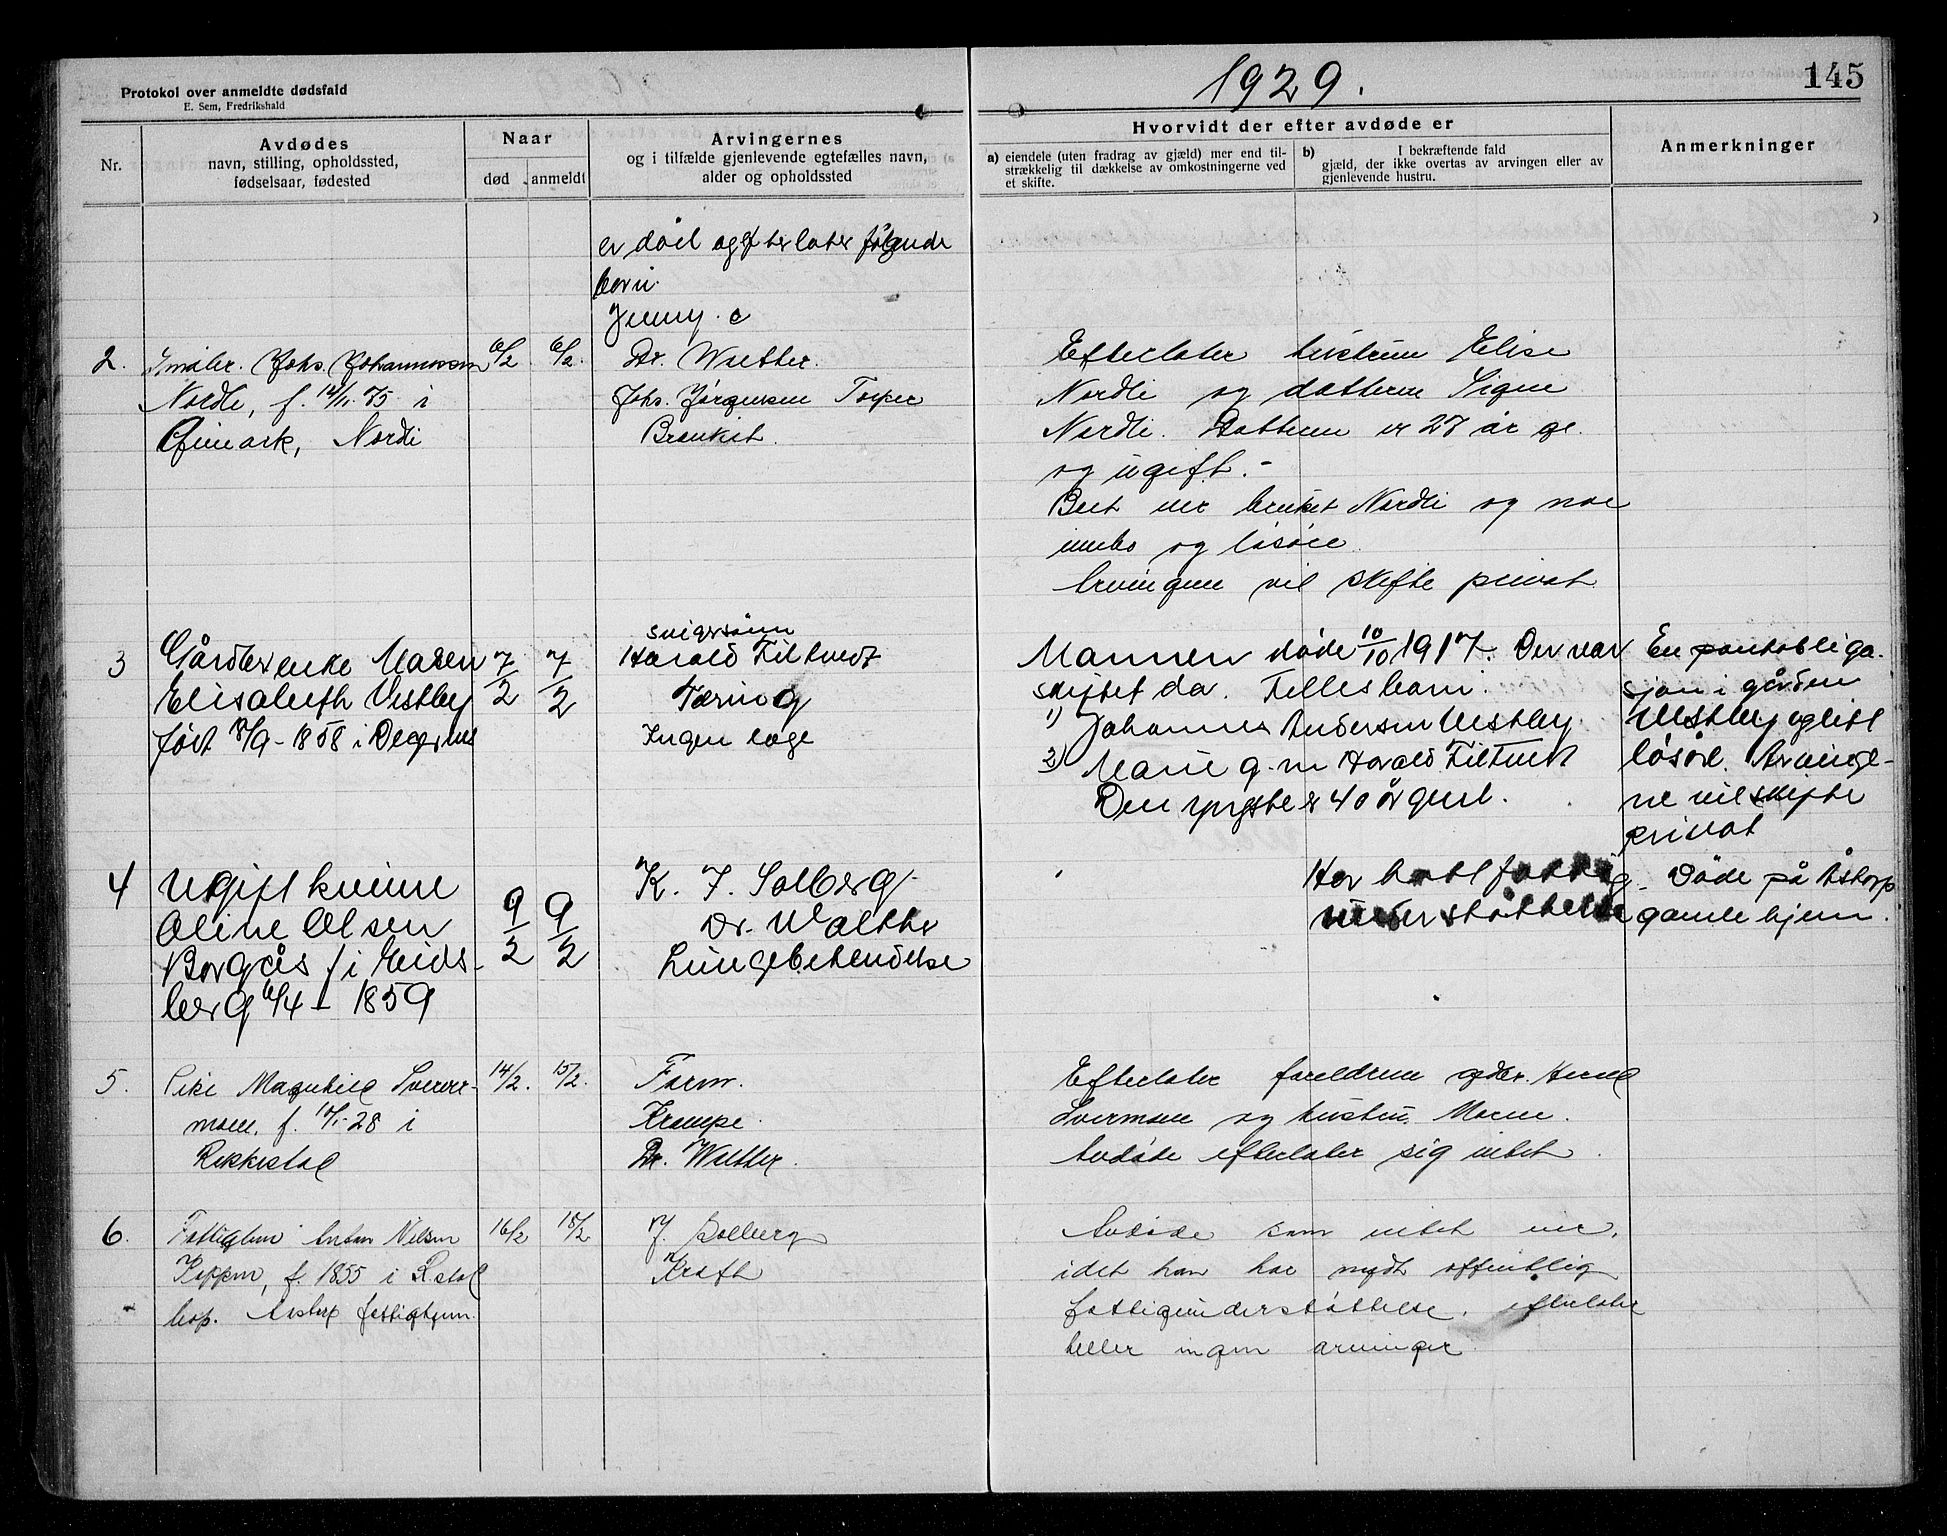 Protokol over anmeldte dødsfald
E. Sem, Fredrikshald
1929.
145
Nr.
Avdødes
navn, stilling, opholdssted,
fødselsaar, fødested
Naar
død
anmeldt
Arvingernes
og i tilfælde gjenlevende egtefælles navn,
alder og opholdssted
Hvorvidt der efter avdøde er
a) eiendele (uten fradrag av gjæld) mer end til-
strækkelig til dækkelse av omkostningerne ved
et skifte.
b) I bekræftende fald
gjæld, der ikke overtas av arvingen eller av
gjenlevende hustru.
Anmerkninger
er død og efterlater følgende
børn.
Jenny.
2.
Johs. Johannessen
Nordli, f. 14/11.75 i
Øimark, Nordli
6/2
6/2.
Dr. Walther.
Johs. Jørgensen Torper
Efterlater hustrum Elise
Nordli og datteren Signe
Nordli. Datteren er 27 år ge.
og ugift.-
Boet eier bruket Nordli og noe
innbo og løsøre
Arvingene vil skifte privat
3
Gårdbr enke Maren
Elisabeth Vestby
født 8/9-1858 i Degernes
7/2
7/2
svigersønn
Harald Filtvedt
Ingen læge
Mannen døde 10/10 1917. Der var
skiftet da. Fellesbarn:
1) Johannes Andersen Vestby
2) Marie g. m Harald Filtvedt
Den yngste er 40 år gml.
En pantobliga-
sjon i gården
Vestby og litt
løsøre. Arvinge-
ne vil skifte
privat
4
Ugift kvinne
Oline Olsen
Borgås f i Eids-
berg 6/4-1859
9/2
9/2
K. J. Solberg
Dr. Walther
Lungebetendelse
Har hatt fattig-
understøttelse
Døde på Åstorp
gamlehjem.
5.
Pike Magnhild Sverer-
moen. f. 28 i
Rakkestad
14/2.
15/2.
Farm.
Krampe.
Dr. Walther.
Efterlater foreldrene
og hustru
Avdøde efterlater sig intet.
6.
Fattiglem Anton Nilsen
Koppen, f. 1855 i R.stad
bop. fattighjem.
16/2
18/2
J. Solberg
Kreft
Avdøde som intet eier,
idet han har nydt offentlig
fattigunderstøttelse, efterlater
heller ingen arvinger